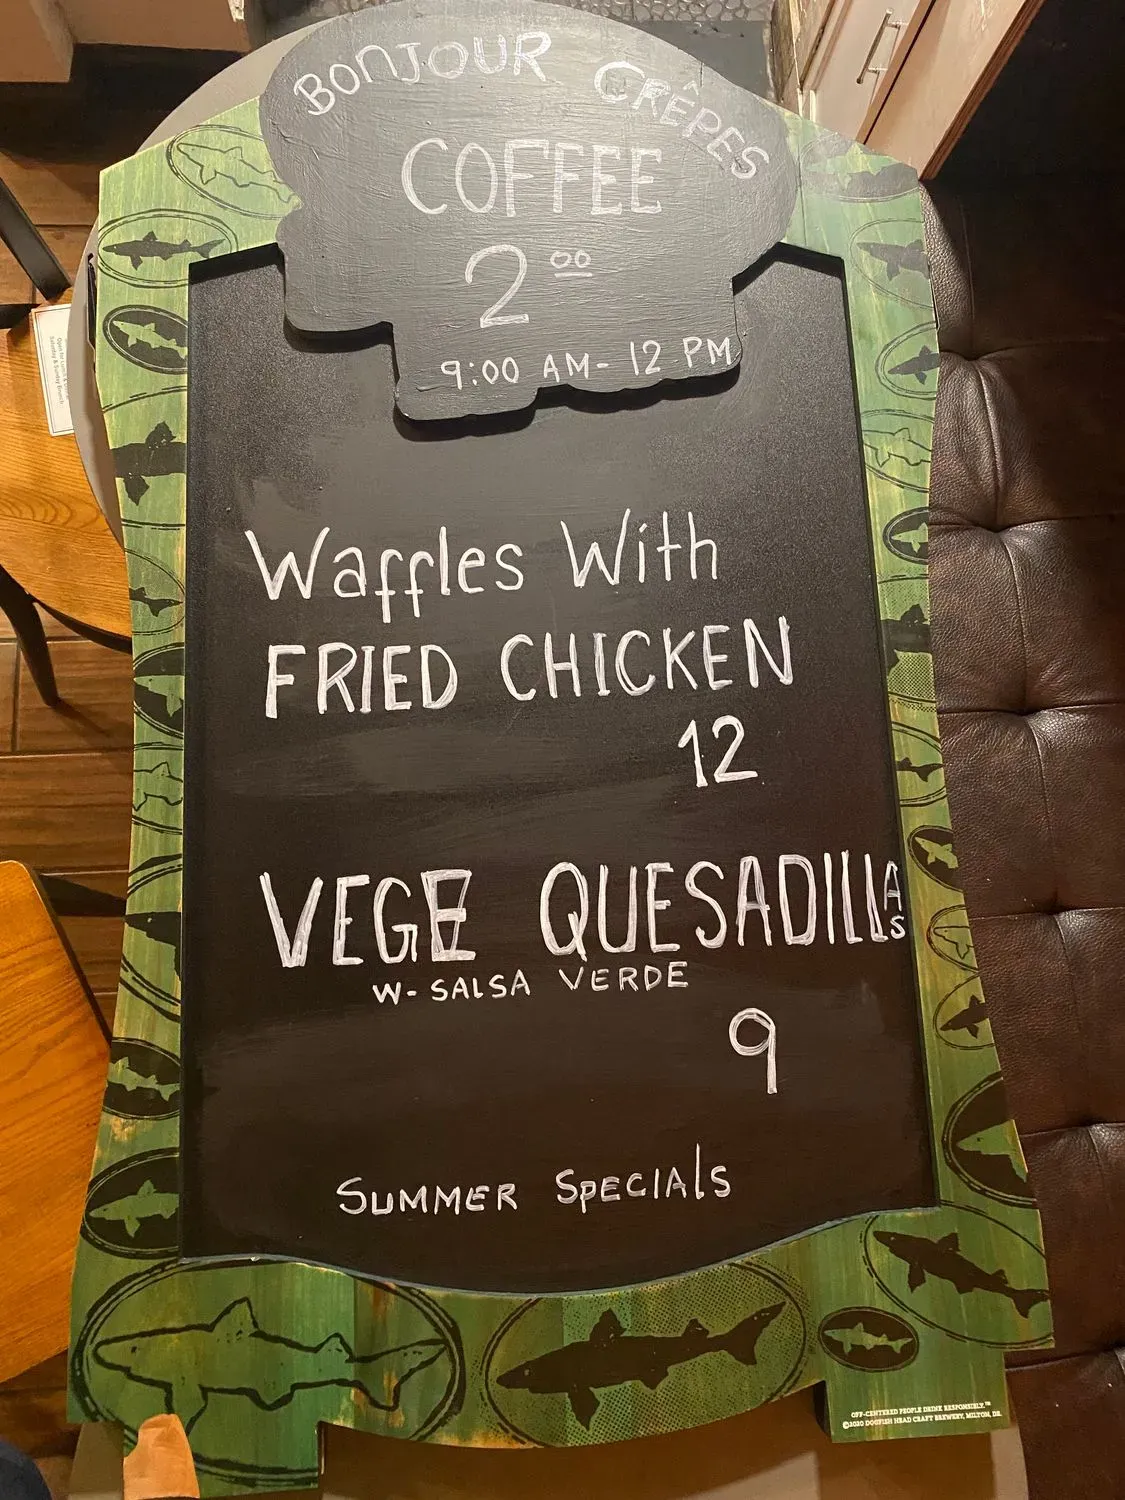 BONJOUR CRÊPES
COFFEE
2 00
9:00 AM- 12 PM
Waffles With
FRIED CHICKEN
12
VEGE QUESADILLAS
W- SALSA VERDE
9
SUMMER SPECIALS
OFF-CENTERED PEOPLE DRINK RESPONSIBLY.™
©2020 DOGFISH HEAD CRAFT BREWERY, MILTON, DE.
Saturday & Sunday Brunch